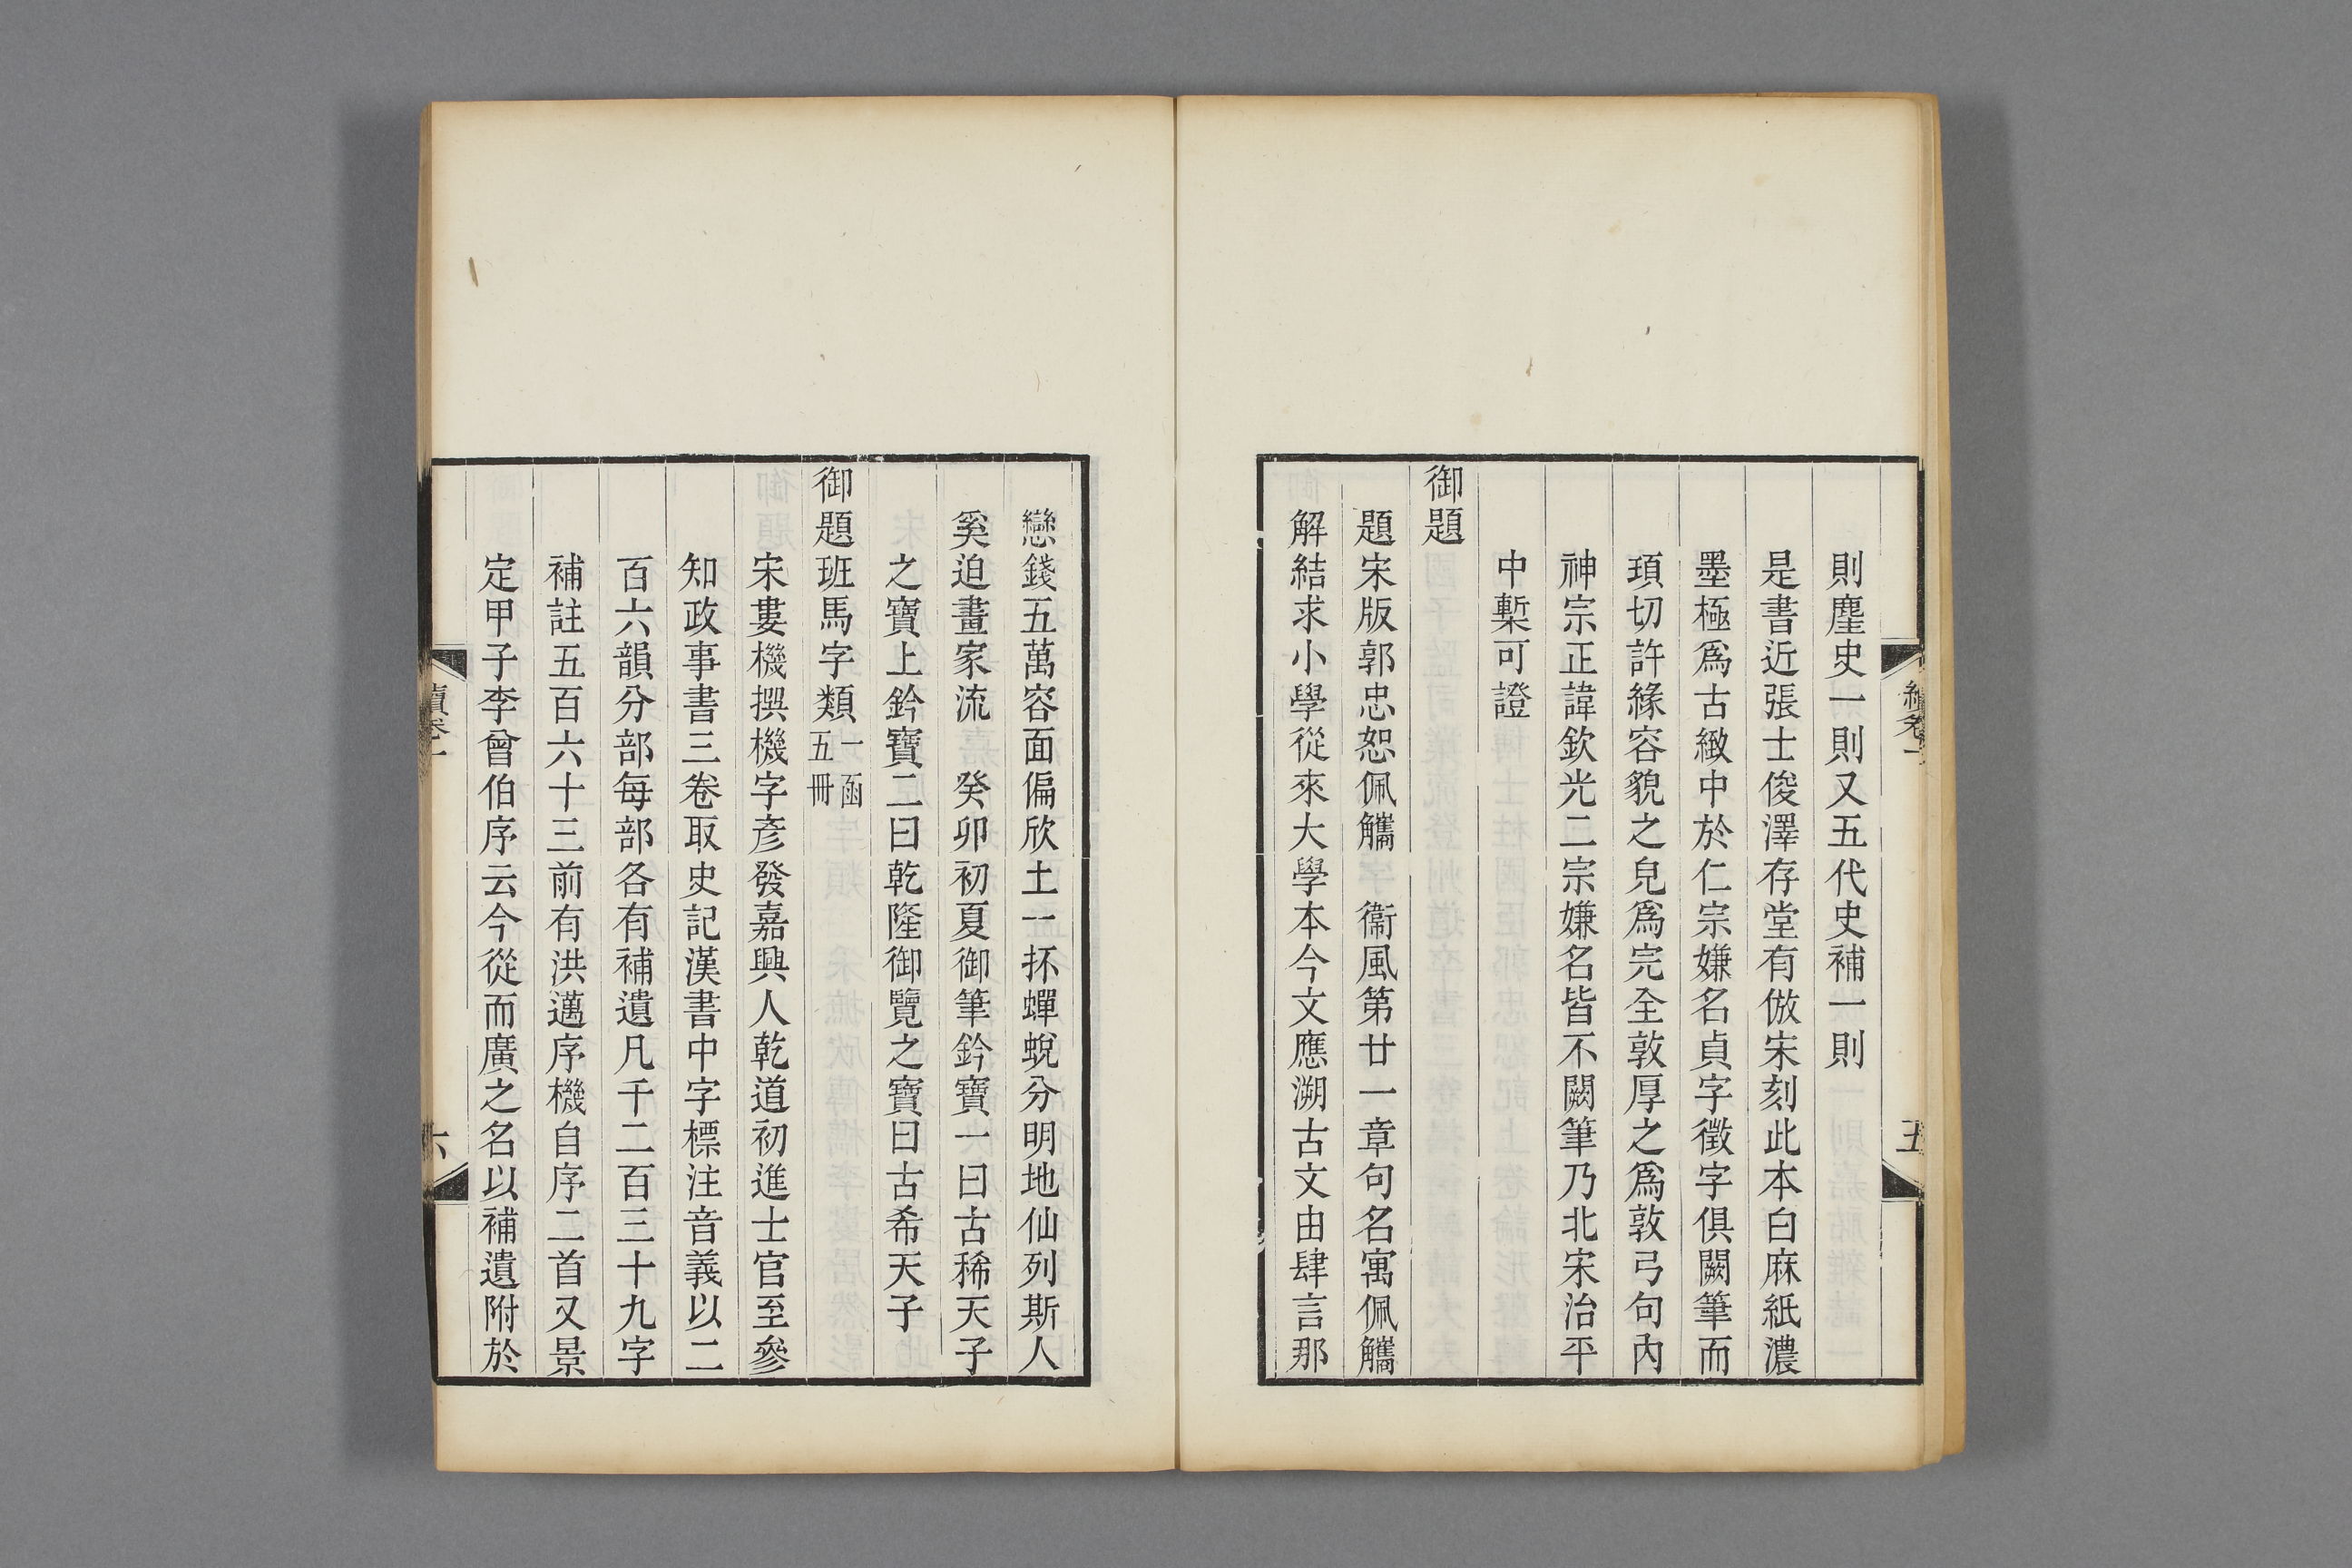 則麈史一則又五代史補一則
是書近張士俊澤存堂有倣宋刻此本白麻紙濃
墨極爲古緻中於仁宗嫌名貞字徵字俱闕筆而
頊切許緣容貌之皃爲完全敦厚之爲敦弓句內
神宗正諱欽光二宗嫌名皆不闕筆乃北宋治平
中槧可證
御題
題宋版郭忠恕佩觿 衞風第廿一章句名寓佩觿
解結求小學從來大學本今文應溯古文由肆言那
戀錢五萬容面偏欣土一抔蟬蛻分明地仙列斯人
奚迫畫家流 癸卯初夏御筆鈐寶一曰古稀天子
之寶上鈐寶二曰乾隆御覽之寶曰古希天子
御題班馬字類一函五冊
宋婁機撰機字彥發嘉興人乾道初進士官至參
知政事書三卷取史記漢書中字標注音義以二
百六韻分部每部各有補遺凡千二百三十九字
補註五百六十三前有洪邁序機自序二首又景
定甲子李曾伯序云今從而廣之名以補遺附於
續卷一
六